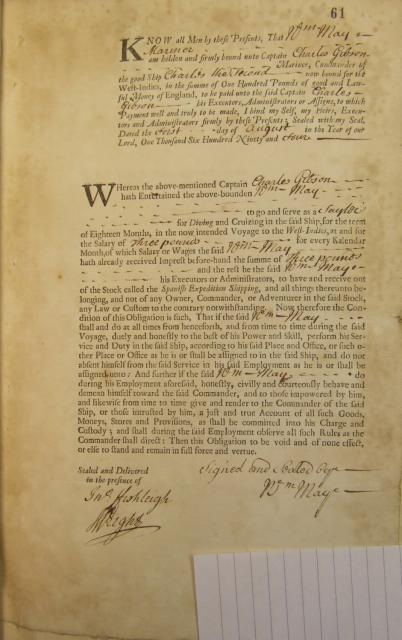 61
KNOW all Men by these Presents, That Wm May
Mariner
am holden and firmly bound unto Captain Charles Gibson
Mariner, Commander of
the good Ship Charles the Second now bound for the
West-Indies, in the summe of One Hundred Pounds of good and Law-
ful Money of England, to be paid unto the said Captain Charles
Gibson his Executors, Administrators or Assigns, to which
Payment well and truly to be made, I bind my Self, my Heirs, Execu-
tors and Administrators firmly by these Presents; Sealed with my Seal,
Dated the first day of August in the Year of our
Lord, One Thousand Six Hundred Ninety and four
Whereas the above-mentioned Captain Charles Gibson
hath Entertained the above-bounden Wm May
to go and serve as a Saylor
for Diving and Cruizing in the said Ship, for the term
of Eighteen Months, in the now intended Voyage to the West-Indies, at and for
the Salary of three pounds for every Kalendar
Month, of which Salary or Wages the said Wm May
hath already received Imprest before-hand the summe of three pounds
and the rest he the said Wm May
his Executors or Administrators, to have and receive out
of the Stock called the Spanish Expedition Shipping, and all things thereunto be-
longing, and not of any Owner, Commander, or Adventurer in the said Stock,
any Law or Custom to the contrary notwithstanding. Now therefore the Con-
dition of this Obligation is such, That if the said Wm May
shall and do at all times from henceforth, and from time to time during the said
Voyage, duely and honestly to the best of his Power and Skill, perform his Ser-
vice and Duty in the said Ship, according to his said Place and Office, or such o-
ther Place or Office as he is or shall be assigned to in the said Ship, and do not
absent himself from the said Service in his said Employment as he is or shall be
assigned unto: And further if the said Wm May do
during his Employment aforesaid, honestly, civilly and courteously behave and
demean himself toward the said Commander, and to those impowered by him,
and likewise from time to time give and render to the Commander of the said
Ship, or those intrusted by him, a just and true Account of all such Goods,
Moneys, Stores and Provisions, as shall be committed into his Charge and
Custody; and shall during the said Employment observe all such Rules as the
Commander shall direct: Then this Obligation to be void and of none effect,
or else to stand and remain in full force and vertue.
Sealed and Delivered
in the presence of
Signed and Sealed by
Wm May
Jno Ashleigh
Wright